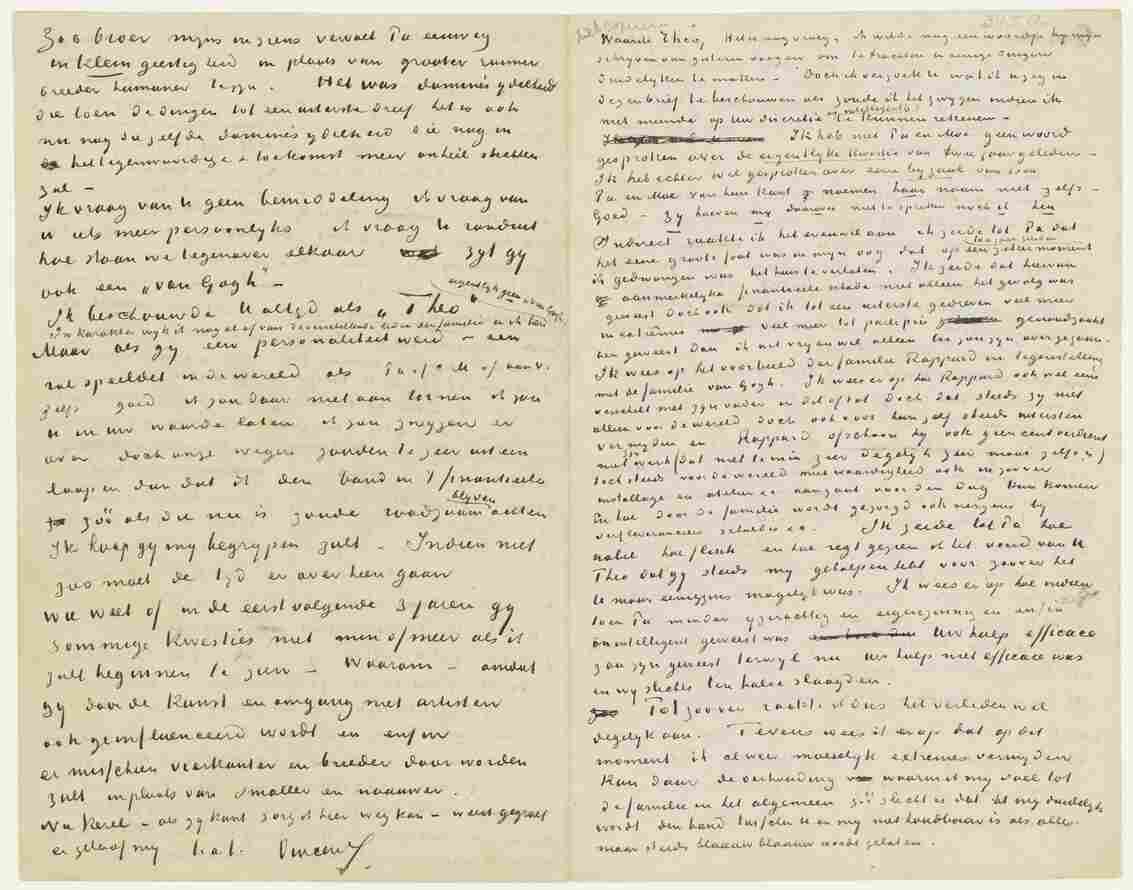 Zoo broer mijns inziens verviel Pa eeuwig
in kleingeestigheid in plaats van grooter ruimer
breeder humaner te zijn. Het was dominésijdelheid
die toen de dingen tot een uiterste dreef het is ook
nu nog diezelfde dominésijdelheid die nog in
het tegenwoordige & toekomst meer onheil stichten
zal –
Ik vraag van U geen bemiddeling ik vraag van
U iets meer persoonlijks ik vraag U ronduit
hoe staan we tegenover elkaar zijt gij
ook een „van Gogh" –
Ik beschouwde U altijd als „Theo"
eigentlijk geen van Gogh
In karakter wijk ik nog al af van de verschillende leden der familie en ik ben
Maar als gij een personaliteit werd – een
rol speeldet in de wereld als Pa of C.M. of oom V.
zelfs goed ik zou daar niet aan tornen ik zou
U in uw waarde laten ik zou zwijgen er
over doch onze wegen zouden te zeer uiteen
loopen dan dat ik den band in 't financieele
blijven
zóó als die nu is zoude raadzaam achten
Ik hoop gij mij begrijpen zult – Indien niet
zoo moet de tijd er over heen gaan
wie weet of in de eerstvolgende 3 jaren gij
sommige kwesties niet min of meer als ik
zult beginnen te zien – Waarom – omdat
gij door de kunst en omgang met artisten
ook geinfluenceerd wordt en enfin
er misschien vierkanter en breeder door worden
zult in plaats van smaller en naauwer.
Nu kerel – als gij kunt zorg ik hier weg kan – weest gegroet
en geloof mij t.à.t. Vincent
Waarde Theo, Het is nog vroeg, ik wilde nog een woordje bij mijn
schrijven van gisteren voegen om te trachten U eenige dingen
duidelijker te maken – Doch ik verzoek U wat ik U zeg in
dezen brief te beschouwen als zoude ik het zwijgen indien ik
en intelligentie
niet meende op Uw discretie te kunnen rekenen –
Ik heb met Pa en Moe geen woord
gesproken over de eigentlijke kwestie van twee jaar geleden –
Ik heb echter wel gesproken over eene bijzaak van toen
Pa en Moe van hun kant noemen haar naam niet zelfs –
Goed – zij hoeven mij daarover niet te spreken noch ik hen
Indirect raakte ik het evenwel aan ik zeide tot Pa dat
het eene groote fout was in mijn oog dat op een zeker moment
twee jaar geleden
ik gedwongen was het huis te verlaten. Ik zeide dat hiervan
aanmerkelijke financieele schade niet alleen het gevolg was
geweest doch ook dat ik tot een uiterste gedreven veel meer
in extrèmes veel meer tot partijpris genoodzaakt
ben geweest dan ik uit vrijen wil alleen toe zou zijn overgegaan.
Ik wees op het voorbeeld der familie Rappard in tegenstelling
met de familie van Gogh. Ik wees er op hoe Rappard ook wel eens
verschilt met zijn vader in dit of dat doch dat steeds zij niet
alleen voor de wereld doch ook voor hun zelf steeds uitersten
vermijden en Rappard ofschoon hij ook geen cent verdient
zijn
met werk (dat niettemin zeer degelijk zeer mooi zelfs is)
toch steeds voor de wereld met waardigheid ook in zoover
installage en atelier &c. aangaat voor den dag kan komen
En hoe door de familie wordt gezorgd ook nergens bij
verfleverancier schulden &c. Ik zeide tot Pa hoe
nobel hoe flink en hoe regt gezien ik het vond van U
Theo dat gij steeds mij geholpen hebt voor zoover het
te maar eenigzins mogelijk was. Ik wees er op hoe indien
toen Pa minder ijzerachtig en eigenzinnig en enfin
onintelligent geweest was Uw hulp efficace
zou zijn geweest terwijl nu uw hulp niet efficace was
en wij slechts ten halve slaagden.
Tot zoover raakte ik dus het verleden wel
degelijk aan. Tevens wees ik er op dat op dit
moment ik alweer moeielijk extremes vermijden
kan daar de verhouding waarin ik mij voel tot
de familie in het algemeen zóó slecht is dat het mij duidelijk
wordt den band tusschen U en mij niet houdbaar is als alles
maar steeds blaauw blaauw wordt gelaten.